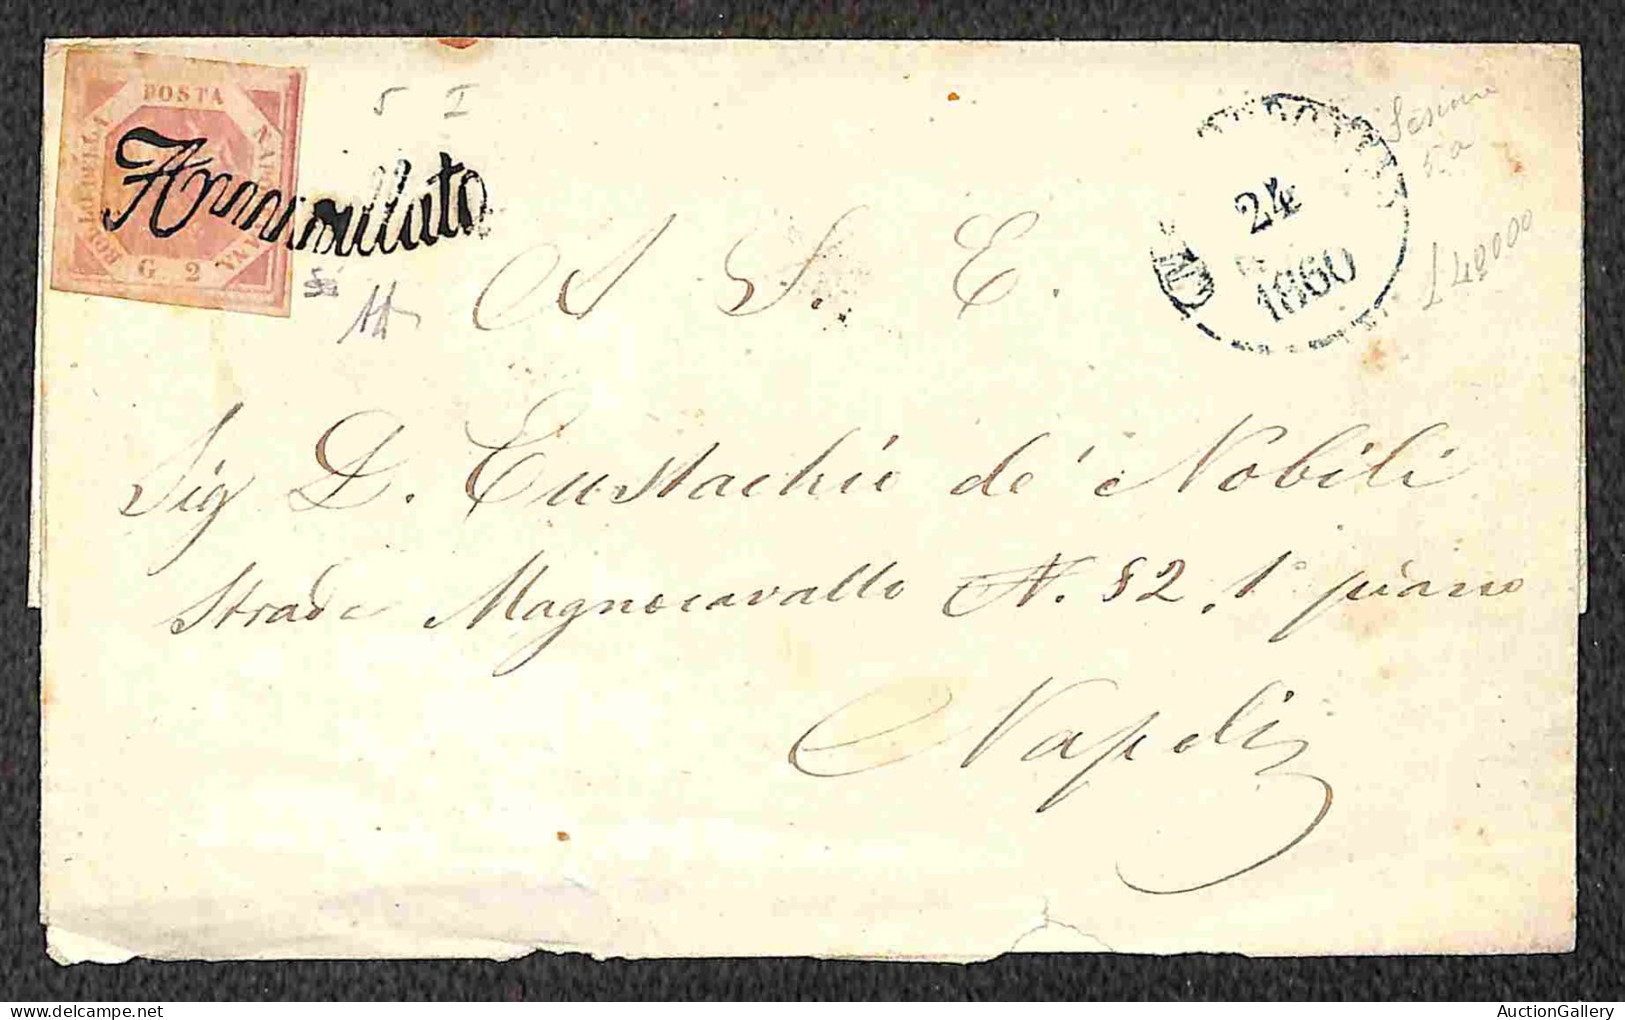 POSTA
NAPOLETANA
BOLLO DELLA
G. 2
Annullato
5 I
24
1860
Sessione
5a
£ 48000
A S. E.
Sig D. Eustachio de' Nobili
Strada Magnocavallo N. 52, 1° piano
Napoli
AuctionGallery